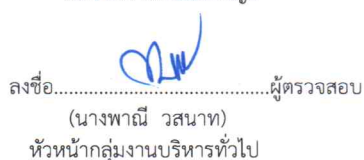 ลงชื่อ................................ผู้ตรวจสอบ
(นางพาณี วสนาท)
หัวหน้ากลุ่มงานบริหารทั่วไป